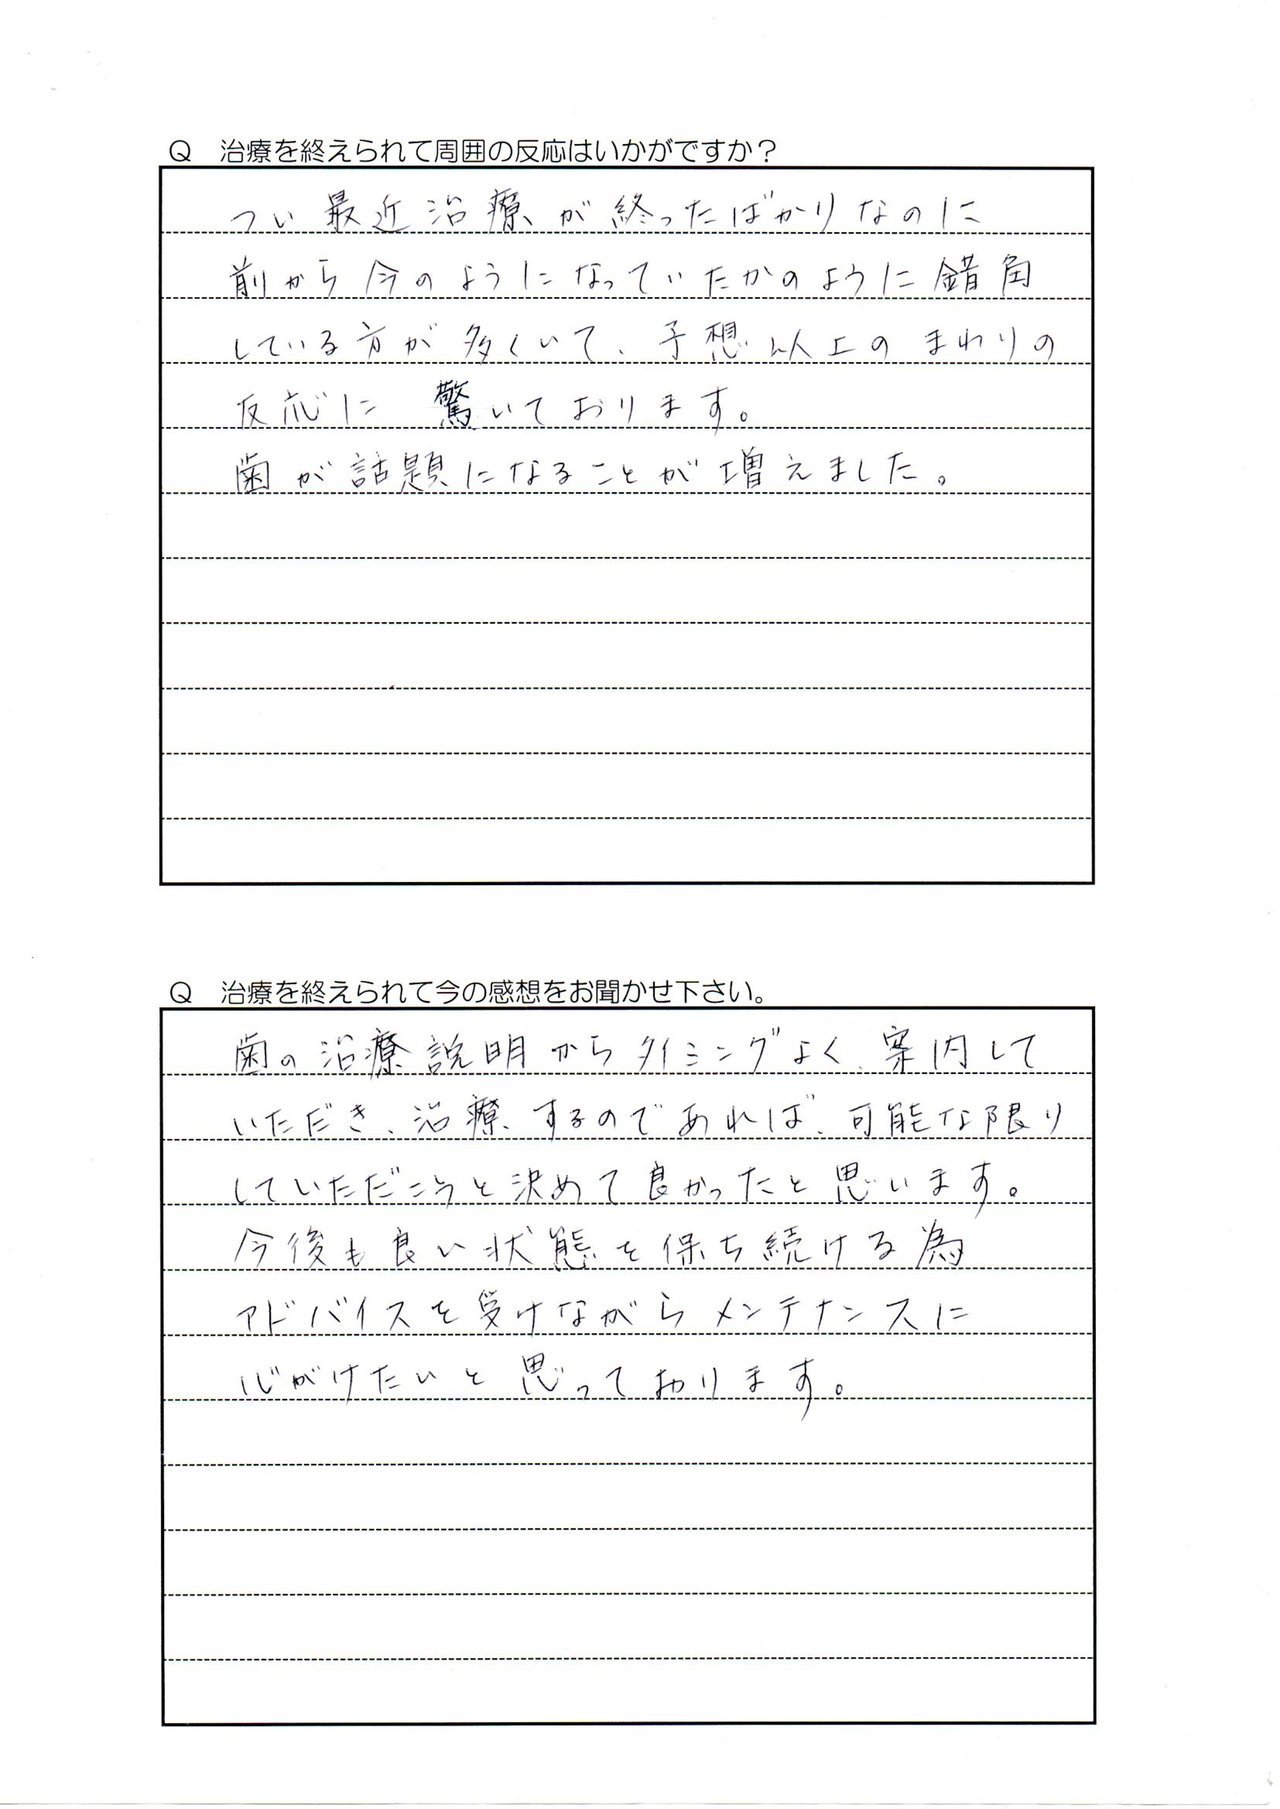 Q 治療を終えられて周囲の反応はいかがですか？
つい最近治療が終ったばかりなのに
前から今のようになっていたかのように錯角
している方が多くいて、予想以上のまわりの
反応に驚いております。
歯が話題になることが増えました。
Q 治療を終えられて今の感想をお聞かせ下さい。
歯の治療説明からタイミングよく、案内して
いただき、治療するのであれば、可能な限り
していただこうと決めて良かったと思います。
今後も良い状態を保ち続ける為
アドバイスを受けながらメンテナンスに
心がけたいと思っております。